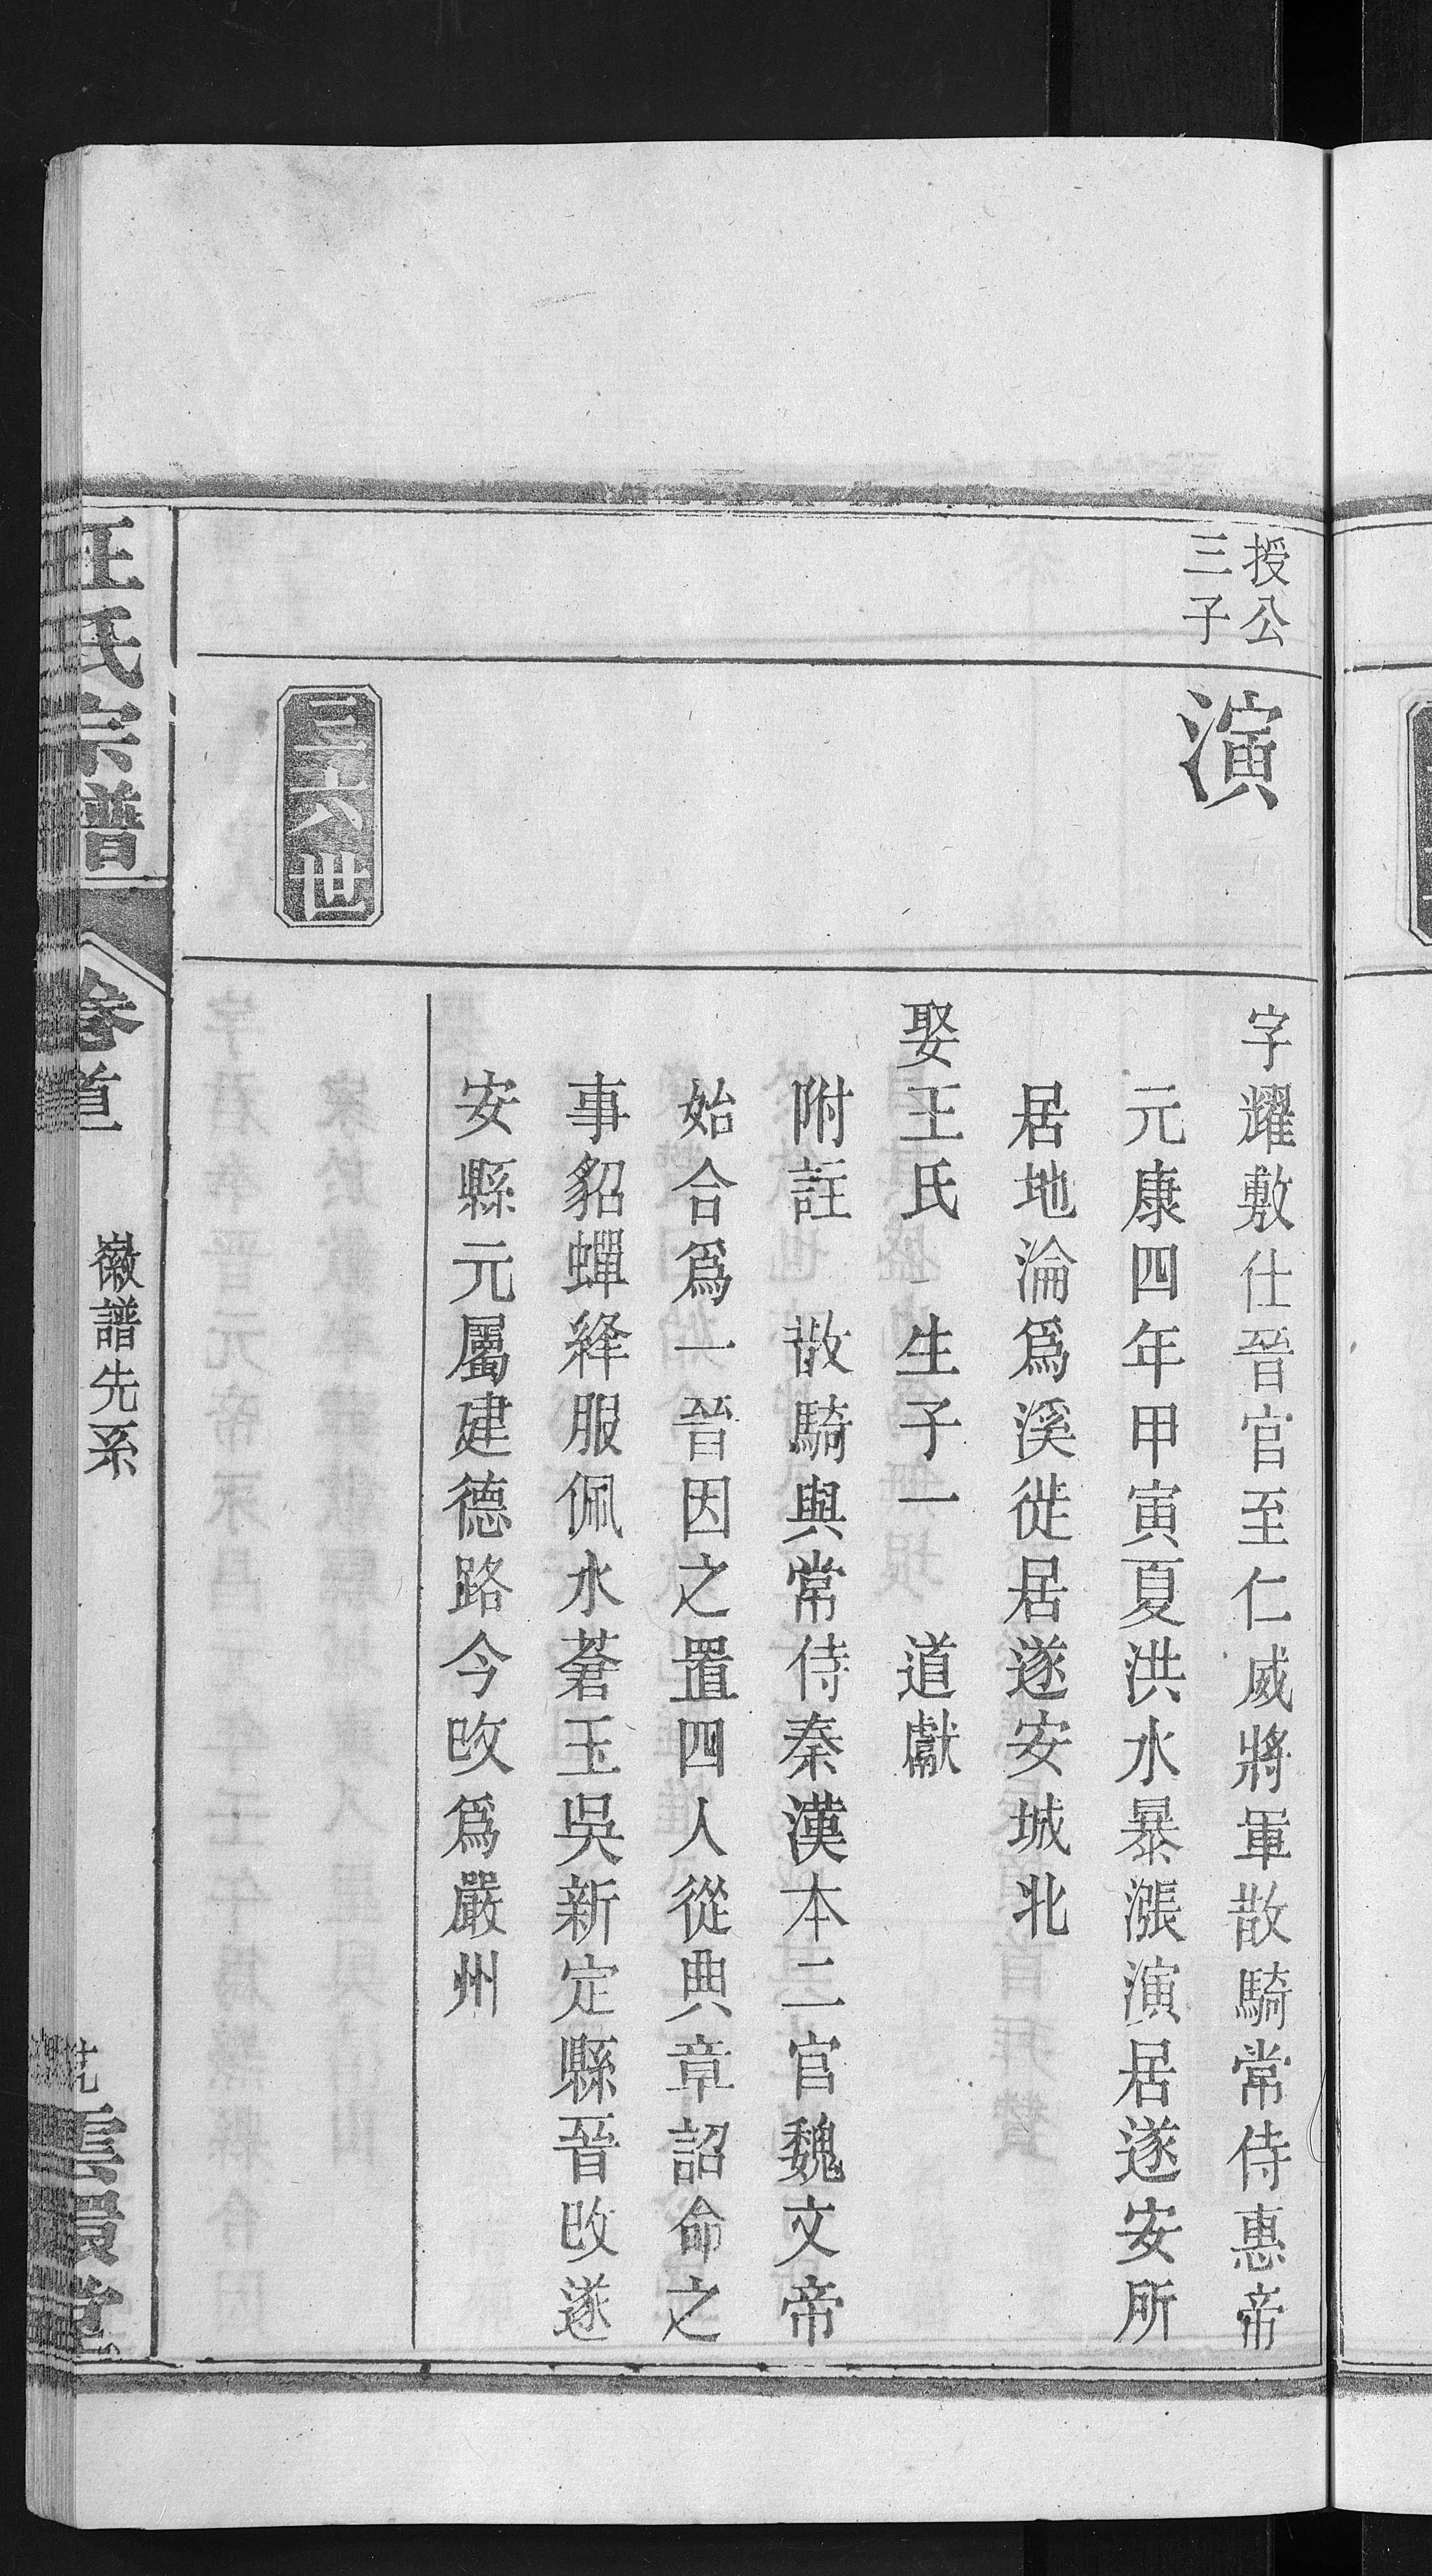 授公
三子
演
字耀敷仕晉官至仁威將軍散騎常侍惠帝
元康四年甲寅夏洪水暴漲演居遂安所
居地淪爲溪徙居遂安城北
娶王氏 生子一 道獻
附註 散騎與常侍秦漢本二官魏文帝
始合爲一晉因之置四人從典章詔命之
事貂蟬絳服佩水蒼玉吳新定縣晉改遂
安縣元屬建德路今改爲嚴州
三六世
汪氏宗譜
卷首
徽譜先系
雲環堂